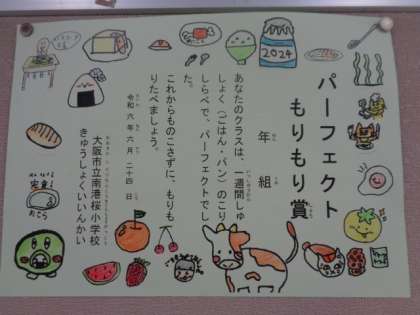 パーフェクト
もりもり賞
年 組
あなたのクラスは、一週間しゅ
しょく(ごはん・パン)のこり
しらべで、パーフェクトでし
た。
これからものこさずに、もりも
りたべましょう。
令和 六年 六月 二十四 日
大阪市立南港桜小学校
きゅうしょくいいんかい
2024